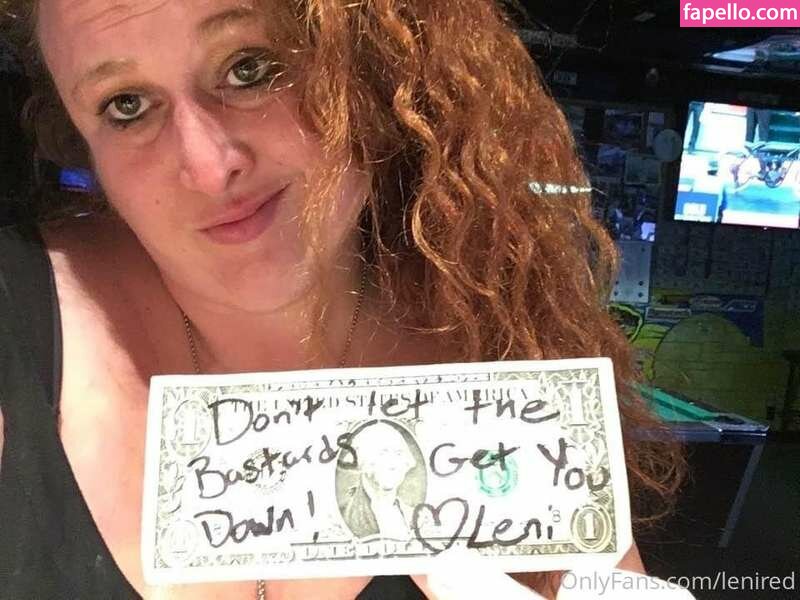 fapello.com
THE UNITED STATES OF AMERICA
Don't let the
Bastards Get You
Down! ♡Leni
ONE DOLLAR
1
1
1
1
B
OnlyFans.com/lenired